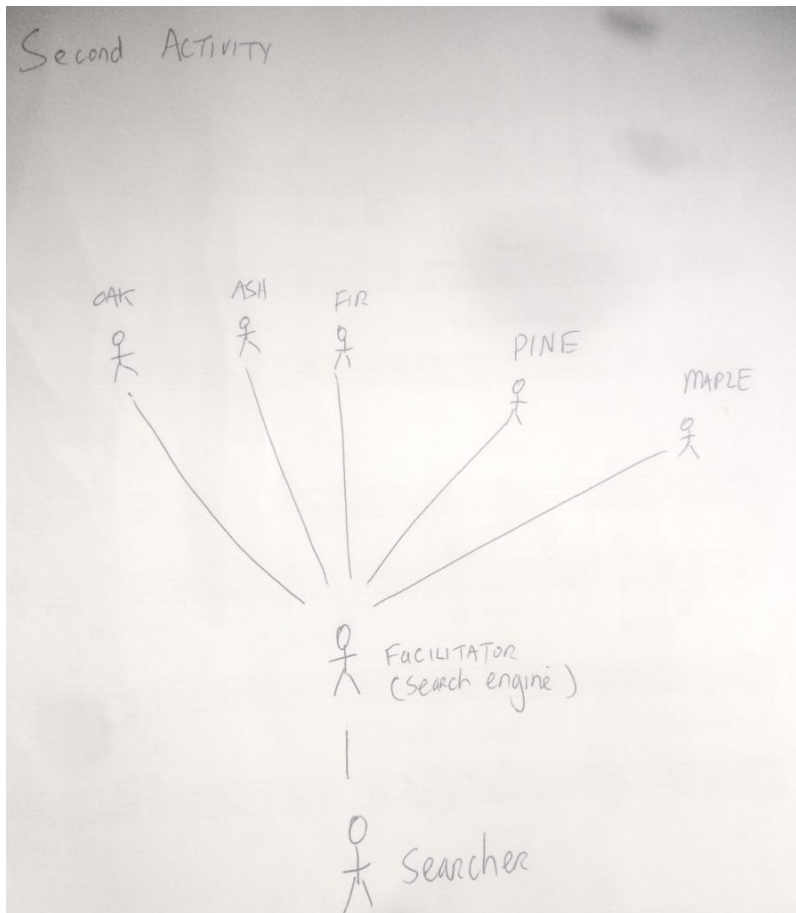 Second ACTIVITY
OAK
ASH
FIR
PINE
MAPLE
FACILITATOR
(search engine)
Searcher